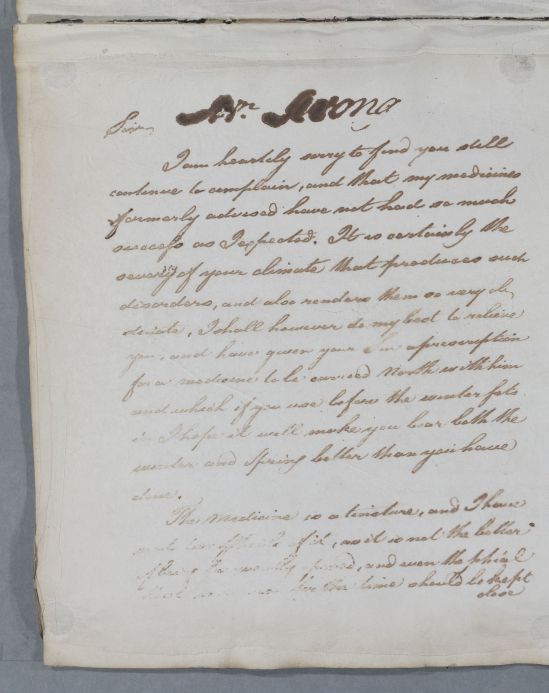 Mr. Arona
Sir
I am heartily sorry to find you still
continue to complain, and that my medicines
formerly advised have not had so much
success as I expected. It is certainly the
severity of your climate that produces such
disorders, and also renders them so very ob,
stinate, I shall however do my best to relieve
you, and have given your Son a prescription
for a medicine to be carried North with him
and which if you use before the winter sets
in I hope it will make you bear both the
winter and Spring better than you have
done.
The medicine is a tincture, and I have
sent two of it, as it is not the better
of being frequently opened, and even the phial
that in use for the time should be kept
close